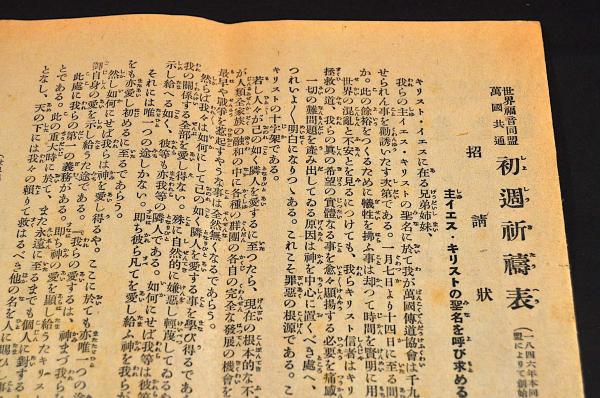 世界福音同盟
萬國共通
初週祈禱表
(一八四六年本同
盟によりて創始
招請狀
主イエス・キリストの聖名を呼び求める
キリスト・イエスに在る兄弟姉妹、
我らの主イエス・キリストの聖名に於て我が萬國傳道協會は千九
せられん事を勸誘いたす次第である。一月七日より十四日に至る間
か。此の餘裕をつくるために犧牲を拂ふ事は却つて時間を賢明に用
世界の混亂と不安とを見るにつけても、我らキリスト信者はキリ
拯救の道、我らの眞の希望の實體なる事を愈々顯揚する必要を痛感
一切の難問題を產み出してゐる原因は神を中心に置くべき處へ、
つれいよ〱明白になりのゝある。これこそ罪惡の根源である。こ
キリストの十字架である。
若し人々が己の如く隣人を愛するに至つたら、現在の根本的な不
が人類全家族の融和の中に各種の群團の各自の完全な發展の機會を
最早や戰爭を惹起すやうな事は全然無くなるであらう。
然らば我々は如何にして己の如く隣人を愛する事を學び得るであ
我の關係する全部を愛し得ない。殊に自然的に嫌惡し輕蔑してゐるも
示し給へる如く、彼等も亦我等の隣人である。如何にせば我等は彼等
それには唯一つの途しかない。卽ち彼ら凡てを愛し給ふ神を我らが
をも亦愛し初めるに至るであらう。
然し如何にせば我らは神を愛し得るや。ここに於ても亦唯一つの途
御自身の愛を示し給うた途である。『我らの愛するは、神まづ我らを
此處に我らの第一の義務がある。卽ち神の愛を顯し給うたキリスト
とである。此の重大時に於て、また永遠に至るまでも個人に對するま
となし、天の下には我々の賴りて救はるべき他の名を人に賜ひし事